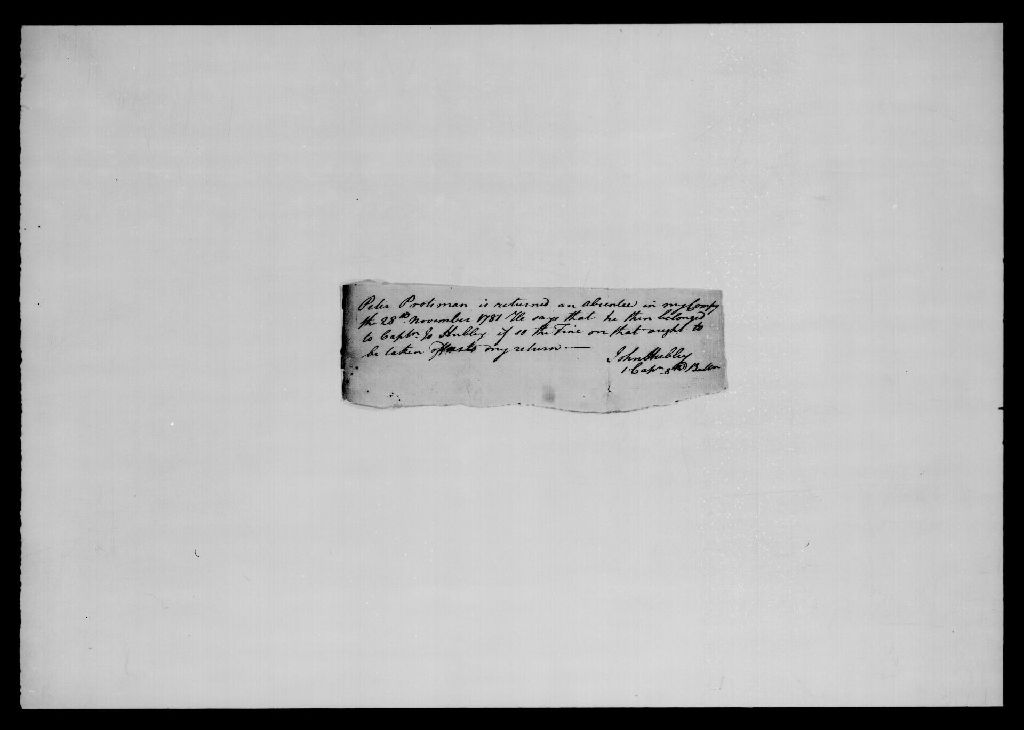 Peter Protsman is returned an absentee in my Compy
the 28th November 1781 He says that he then belonged
to Captn. Jo Hubley if so the Fine on that ought to
be taken off my return —
John Hubley
Captn. 8th Battn